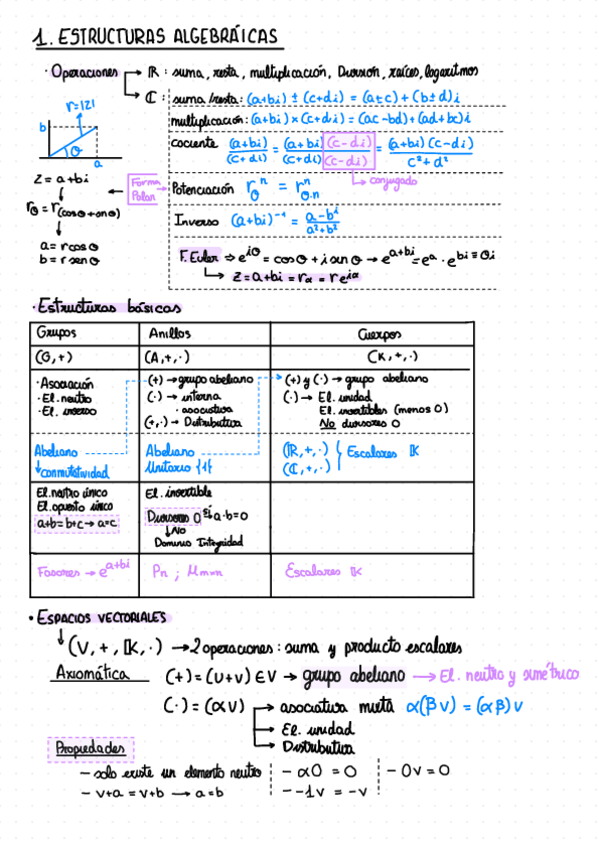 1. ESTRUCTURAS ALGEBRÁICAS
· Operaciones → ℝ : suma, resta, multiplicación, División, raíces, logaritmos
→ ℂ : suma/resta: (a+bi) ± (c+di) = (a±c) + (b±d)i
multiplicación: (a+bi) × (c+di) = (ac-bd) + (ad+bc)i
cociente (a+bi)/(c+di) = (a+bi)(c-di)/(c+di)(c-di) = (a+bi)(c-di)/c²+d²
↳ conjugado
r=|z|
b
θ
a
z = a+bi
Forma Polar
rθ = r(cosθ+senθ)
a = r cosθ
b = r senθ
Potenciación rθⁿ = rⁿθ·n
Inverso (a+bi)⁻¹ = a-bi/a²+b²
F. Euler ⇒ e^iθ = cosθ + i senθ → e^a+bi = e^a · e^bi ≡ θi
↳ z = a+bi = rα = re^iα
· Estructuras básicas
Grupos | Anillos | Cuerpos
(G,+) | (A,+,·) | (K,+,·)
· Asociación
· El. neutro
· El. inverso
(+) → grupo abeliano
(·) → interna
· asociativa
(+,·) → Distributiva
(+) y (·) → grupo abeliano
(·) → El. unidad
El. invertibles (menos 0)
No divisores 0
Abeliano
↓ conmutatividad
Abeliano
Unitario {1}
(ℝ,+,·)
(ℂ,+,·)
Escalares 𝕂
El. neutro único
El. opuesto único
a+b=b+c → a=c
El. invertible
Divisores 0 si a·b=0
↓ No
Dominio Integridad
Fasores → e^a+bi | Pn ; Mmxn | Escalares 𝕂
· ESPACIOS VECTORIALES
↓ (V, +, 𝕂, ·) → 2 operaciones: suma y producto escalares
Axiomática (+) = (u+v) ∈ V → grupo abeliano → El. neutro y simétrico
(·) = (αv) → asociativa mixta α(βv) = (αβ)v
→ El. unidad
→ Distributiva
Propiedades
- solo existe un elemento neutro
- v+a = v+b → a=b
- α0 = 0
- -1v = -v
- 0v = 0